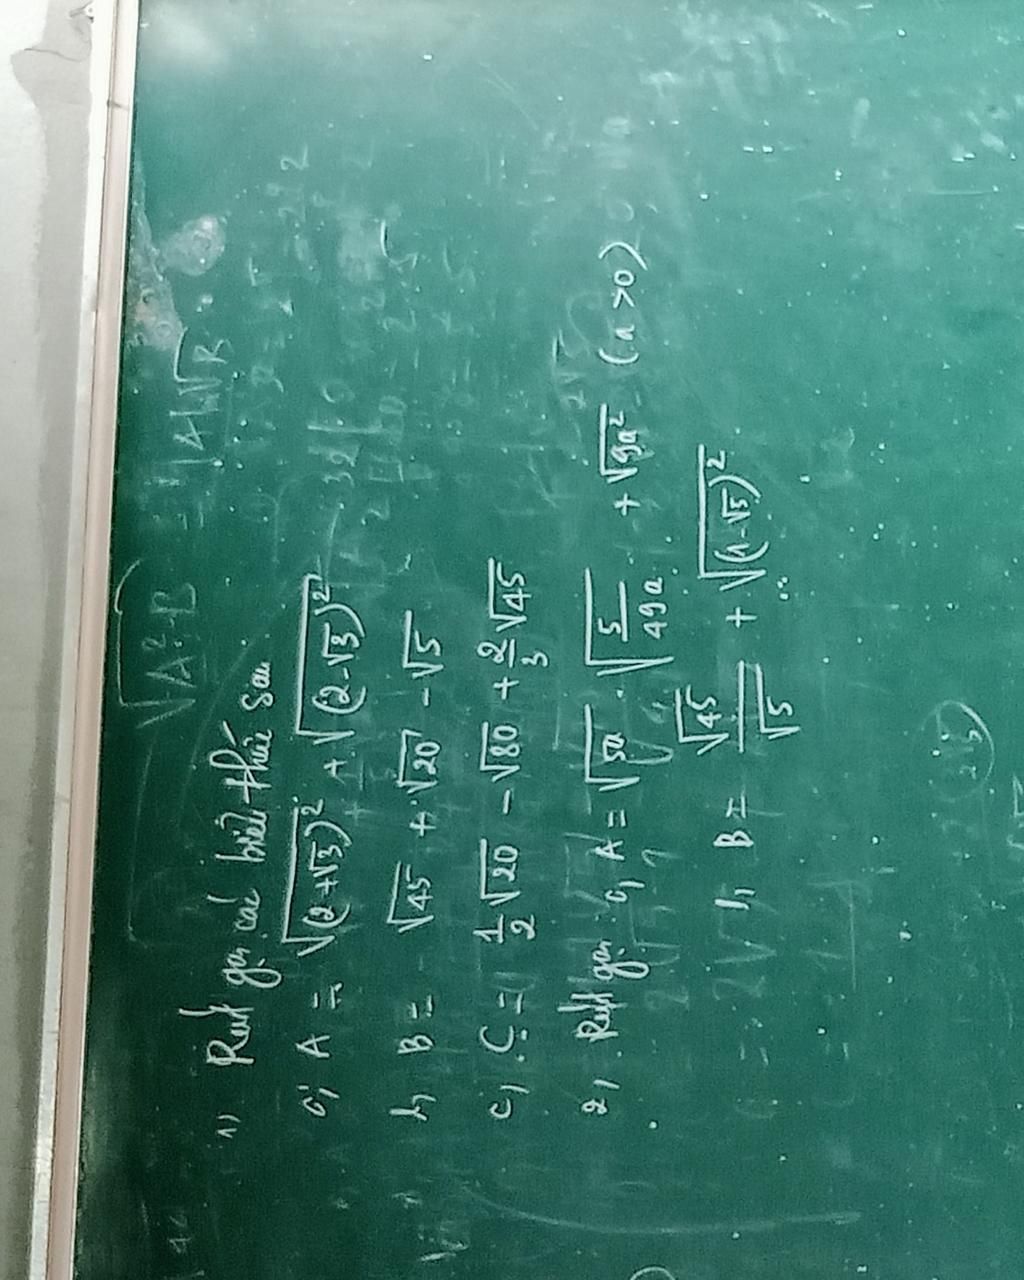 √A²·B = |A|√B
1) Rút gọn các biểu thức sau
a, A = √(2+√3)² + √(2-√3)²
b, B = √45 + √20 - √5
c) C = 1/2 √20 - √80 + 2/3 √45
2) Rút gọn a, A = √5a · √5/49a + √9a² (a >0)
b, B = √45/√5 + √(1-√5)²